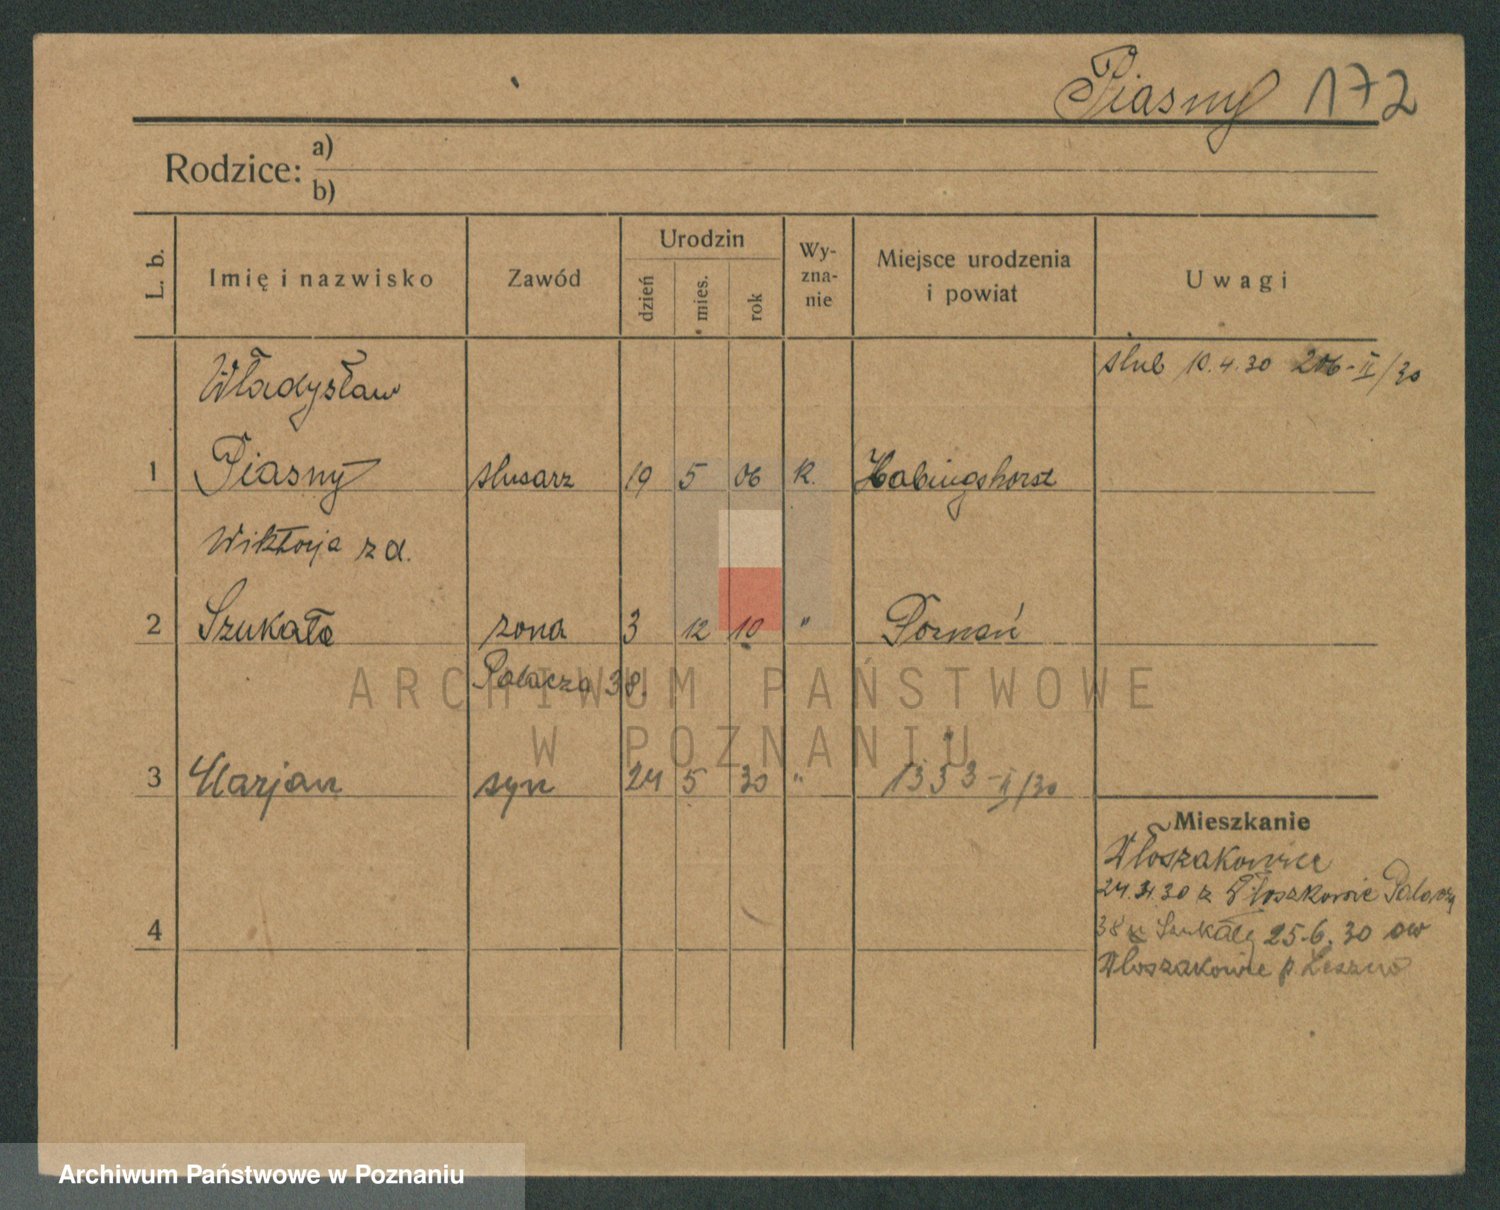 Piasny 172
Rodzice: a)
b)
L. b. Imię i nazwisko Zawód Urodzin dzień mies. rok Wy-zna-nie Miejsce urodzenia i powiat Uwagi
Władysław
ślub 10.4.30 206-II/30
1 Piasny ślusarz 19 5 06 k. Habingshorst
Wiktorja z d.
2 Szukała żona 3 12 10 " Poznań
Palacza 38.
ARCHIWUM PAŃSTWOWE
W POZNANIU
3 Marjan syn 24 5 30 " 1353-II/30
Mieszkanie
Włoszakowice
24.3.30 z Włoszkowic Palacza
4
38 u Szukały 25.6.30 ow
Włoszakowice p. Leszno
Archiwum Państwowe w Poznaniu